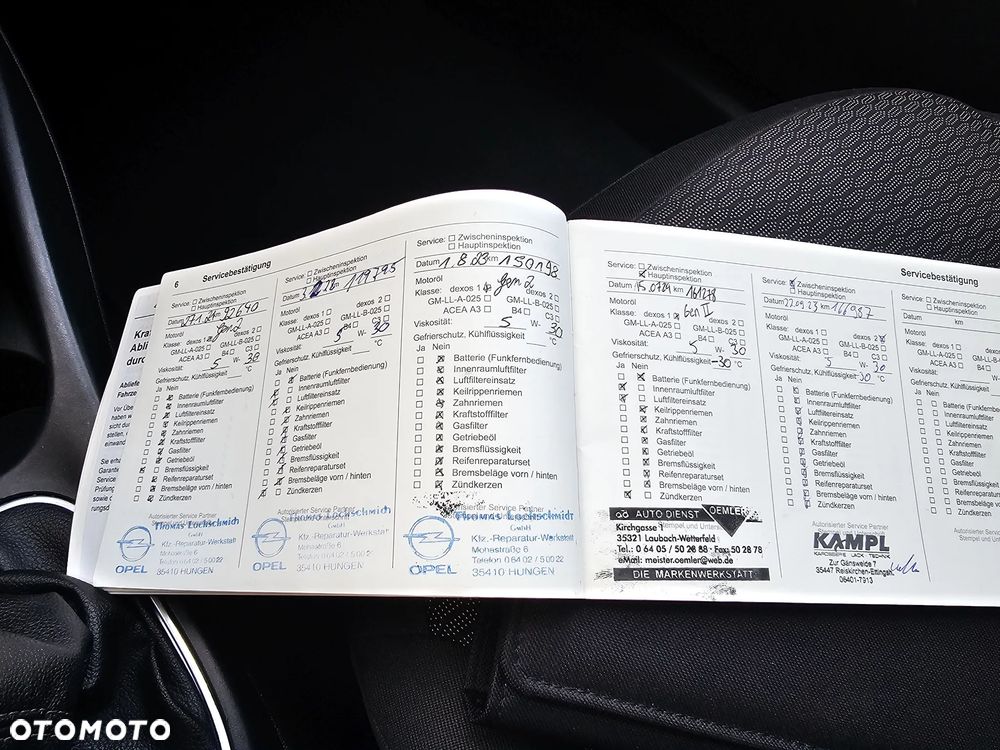 6
Servicebestätigung
Service: ☐ Zwischeninspektion
☐ Hauptinspektion
Datum
Motoröl
Klasse: dexos 1 dexos 2 ☐
GM-LL-A-025 ☐ GM-LL-B-025 ☐
ACEA A3 ☐ B4 ☐ C3 ☐
Viskosität: 5 W- 30
Gefrierschutz, Kühlflüssigkeit: °C
Ja Nein
Batterie (Funkfernbedienung)
Innenraumluftfilter
Luftfiltereinsatz
Keilrippenriemen
Zahnriemen
Kraftstofffilter
Gasfilter
Getriebeöl
Bremsflüssigkeit
Reifenreparaturset
Bremsbeläge vorn / hinten
Zündkerzen
Thomas Lochschmidt
GmbH
Kfz.-Reparatur-Werkstatt
Mohastraße 6
Telefon 06402 / 50022
OPEL 35410 HUNGEN
Service: ☐ Zwischeninspektion
☐ Hauptinspektion
Datum 119795
Motoröl
Klasse: dexos 1 dexos 2 ☐
GM-LL-A-025 ☐ GM-LL-B-025 ☐
ACEA A3 ☐ B4 ☐ C3 ☐
Viskosität: 5 W- 30
Gefrierschutz, Kühlflüssigkeit: °C
Ja Nein
Batterie (Funkfernbedienung)
Innenraumluftfilter
Luftfiltereinsatz
Keilrippenriemen
Zahnriemen
Kraftstofffilter
Gasfilter
Getriebeöl
Bremsflüssigkeit
Reifenreparaturset
Bremsbeläge vorn / hinten
Zündkerzen
GmbH
Kfz.-Reparatur-Werkstatt
Mohastraße 6
Telefon 06402 / 50022
OPEL 35410 HUNGEN
Service: ☐ Zwischeninspektion
☐ Hauptinspektion
Datum 1.8 23 km 150198
Motoröl Gen 2
Klasse: dexos 1 dexos 2 ☐
GM-LL-A-025 ☐ GM-LL-B-025 ☐
ACEA A3 ☐ B4 ☐ C3 ☐
Viskosität: 5 W- 30
Gefrierschutz, Kühlflüssigkeit: °C
Ja Nein
Batterie (Funkfernbedienung)
Innenraumluftfilter
Luftfiltereinsatz
Keilrippenriemen
Zahnriemen
Kraftstofffilter
Gasfilter
Getriebeöl
Bremsflüssigkeit
Reifenreparaturset
Bremsbeläge vorn / hinten
Zündkerzen
Autorisierter Service Partner
Thomas Lochschmidt
GmbH
Kfz.-Reparatur-Werkstatt
Mohastraße 6
Telefon 06402 / 50022
OPEL 35410 HUNGEN
Service: ☐ Zwischeninspektion
☒ Hauptinspektion
Datum 15.0724 km 161278
Motoröl Gen II
Klasse: dexos 1 ☒ dexos 2 ☐
GM-LL-A-025 ☐ GM-LL-B-025 ☐
ACEA A3 ☐ B4 ☐ C3 ☐
Viskosität: 5 W- 30
Gefrierschutz, Kühlflüssigkeit: -30 °C
Ja Nein
Batterie (Funkfernbedienung)
Innenraumluftfilter
Luftfiltereinsatz
Keilrippenriemen
Zahnriemen
Kraftstofffilter
Gasfilter
Getriebeöl
Bremsflüssigkeit
Reifenreparaturset
Bremsbeläge vorn / hinten
Zündkerzen
ad AUTO DIENST OEMLER
Kirchgasse 1
35321 Laubach-Wetterfeld
Tel.: 0 64 05 / 50 28 88 · Fax: 50 28 78
eMail: meister.oemler@web.de
DIE MARKENWERKSTATT
Service: ☒ Zwischeninspektion
☐ Hauptinspektion
Datum km
Motoröl
Klasse: dexos 1 ☐ dexos 2 ☒
GM-LL-A-025 ☐ GM-LL-B-025 ☐
ACEA A3 ☐ B4 ☐ C3 ☐
Viskosität: 5 W- 30
Gefrierschutz, Kühlflüssigkeit: -30 °C
Ja Nein
Batterie (Funkfernbedienung)
Innenraumluftfilter
Luftfiltereinsatz
Keilrippenriemen
Zahnriemen
Kraftstofffilter
Gasfilter
Getriebeöl
Bremsflüssigkeit
Reifenreparaturset
Bremsbeläge vorn / hinten
Zündkerzen
Autorisierter Service Partner
Stempel und Unterschrift
KAMPL
KAROSSERIE LACK TECHNIK
Zur Gänsweide 7
35447 Reiskirchen-Ettingsh.
06401-7913
Servicebestätigung
Service: ☐ Zwischeninspektion
☐ Hauptinspektion
Datum km
Motoröl
Klasse: dexos 1 ☐
GM-LL-A-025 ☐ GM-LL-B
ACEA A3 ☐ B4 ☐
Viskosität:
Gefrierschutz, Kühlflüssigkeit:
Ja Nein
Batterie (Funkfernbedien
Innenraumluftfilter
Luftfiltereinsatz
Keilrippenriemen
Zahnriemen
Kraftstofffilter
Gasfilter
Getriebeöl
Bremsflüssigkeit
Reifenreparaturset
Bremsbeläge vorn / h
Zündkerzen
Autorisierter Service
Stempel und Unters
OTOMOTO